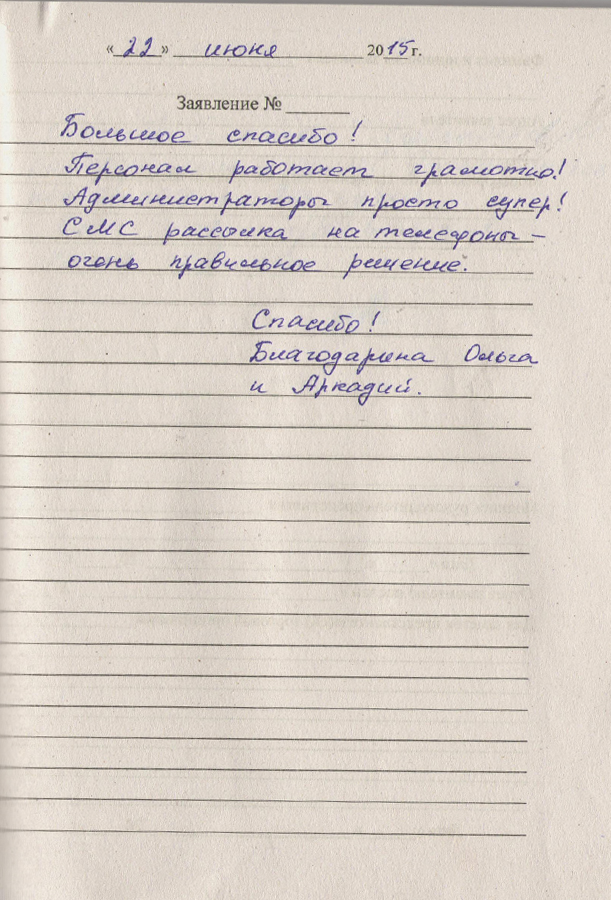 «22» июня 2015 г.
Заявление № ______
Большое спасибо!
Персонал работает грамотно!
Администраторы просто супер!
СМС рассылка на телефоны –
огонь правильное решение.
Спасибо!
Благодарина Ольга
и Аркадий.